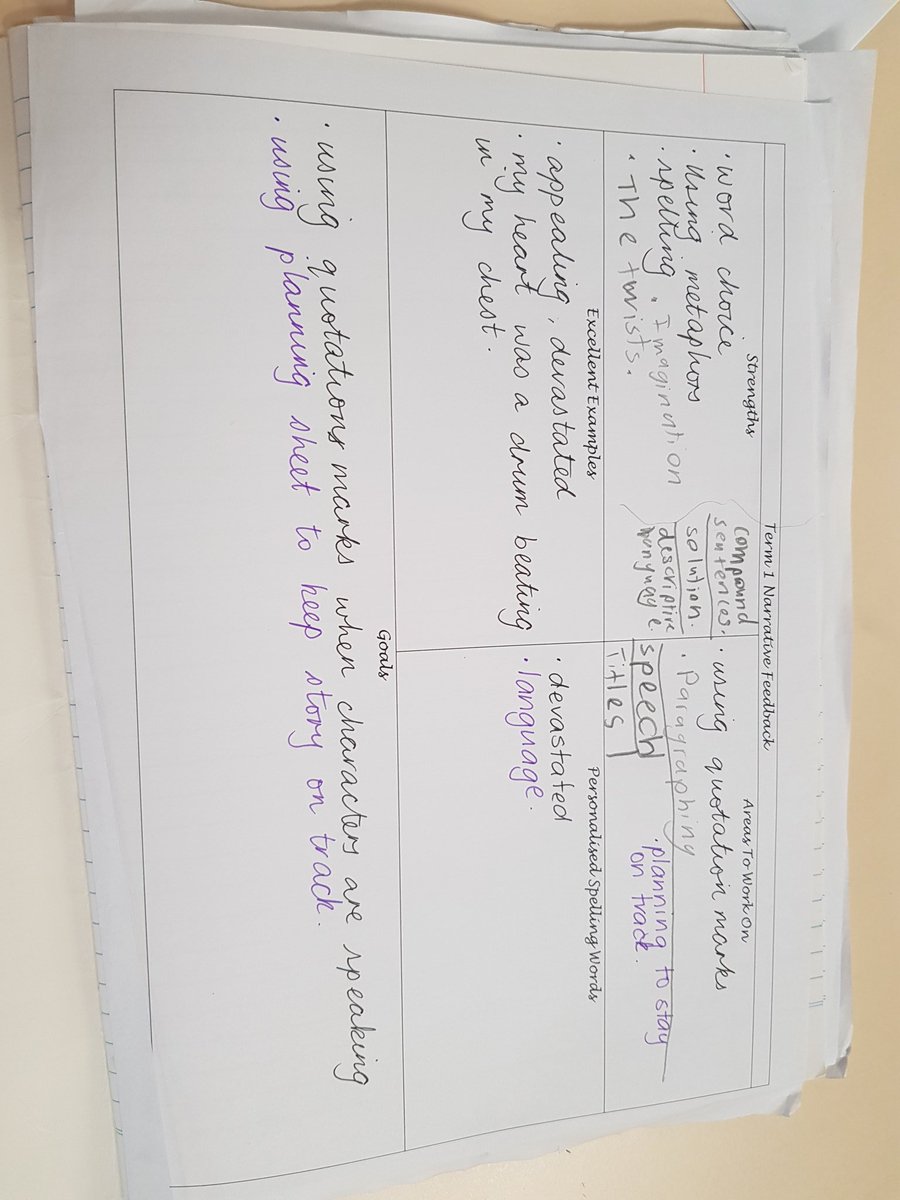 Term 1 Narrative Feedback
Strengths
· word choice
· Using metaphors
· spelling · Imagination
· The twists.
compound
sentences.
solution.
descriptive
Areas To Work On
· using quotation marks
· Paragraphing
speech
Titles
· planning to stay
on track.
Excellent Examples
· appealing, devastated
· my heart was a drum beating
in my chest.
Personalised Spelling Words
· devastated
· language.
Goals
· using quotations marks when characters are speaking
· using planning sheet to keep story on track.